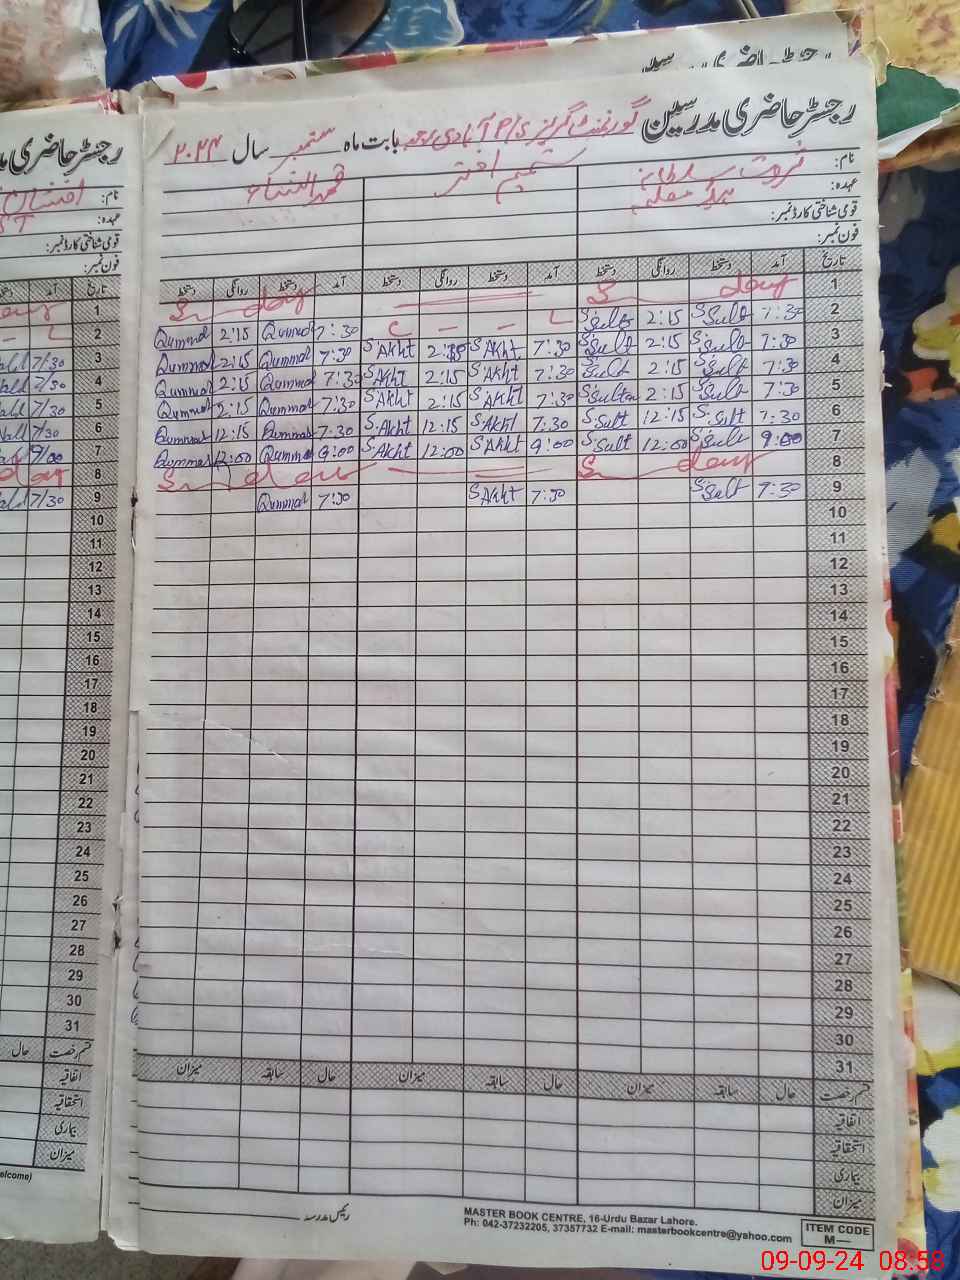 رجسٹر حاضری مدرسین
رجسٹر حاضری مدرسین گورنمنٹ گرلز P/S آبادی بابت ماہ ستمبر سال ۲۰۲۴
نام: شمیم اختر قمر النساء
عہدہ:
قومی شناختی کارڈ نمبر:
فون نمبر:
تاریخ آمد دستخط روانگی دستخط آمد دستخط روانگی دستخط آمد دستخط روانگی دستخط
1 S day S day
2 Qummal 2:15 Qummal 7:30 C – – L S.Sult 2:15 S.Sult 7:30
3 Qummal 2:15 Qummal 7:30 S.Akht 2:15 S.Akht 7:30 S.Sult 2:15 S.Sult 7:30
4 Qummal 2:15 Qummal 7:30 S.Akht 2:15 S.Akht 7:30 S.Sult 2:15 S.Sult 7:30
5 Qummal 2:15 Qummal 7:30 S.Akht 2:15 S.Akht 7:30 S.Sultan 2:15 S.Sult 7:30
6 Qummal 12:15 Qummal 7:30 S.Akht 12:15 S.Akht 7:30 S.Sult 12:15 S.Sult 7:30
7 Qummal 12:00 Qummal 9:00 S.Akht 12:00 S.Akht 9:00 S.Sult 12:00 S.Sult 9:00
8 S day S day
9 Qummal 7:30 S.Akht 7:30 S.Sult 7:30
10
11
12
13
14
15
16
17
18
19
20
21
22
23
24
25
26
27
28
29
30
31
قسم رخصت حال سابقہ میزان حال سابقہ میزان حال سابقہ میزان
اتفاقیہ
استحقاقیہ
بیماری
میزان
رئیس مدرسہ
MASTER BOOK CENTRE, 16-Urdu Bazar Lahore.
Ph: 042-37232205, 37357732 E-mail: masterbookcentre@yahoo.com
ITEM CODE
M—
نام:
عہدہ:
قومی شناختی کارڈ نمبر:
فون نمبر:
تاریخ آمد
1
2
3 7/30
4 7/30
5 7/30
6 7/30
7 9/00
8
9 7/30
10
11
12
13
14
15
16
17
18
19
20
21
22
23
24
25
26
27
28
29
30
31
قسم رخصت حال
اتفاقیہ
استحقاقیہ
بیماری
میزان
elcome)
09-09-24 08:58